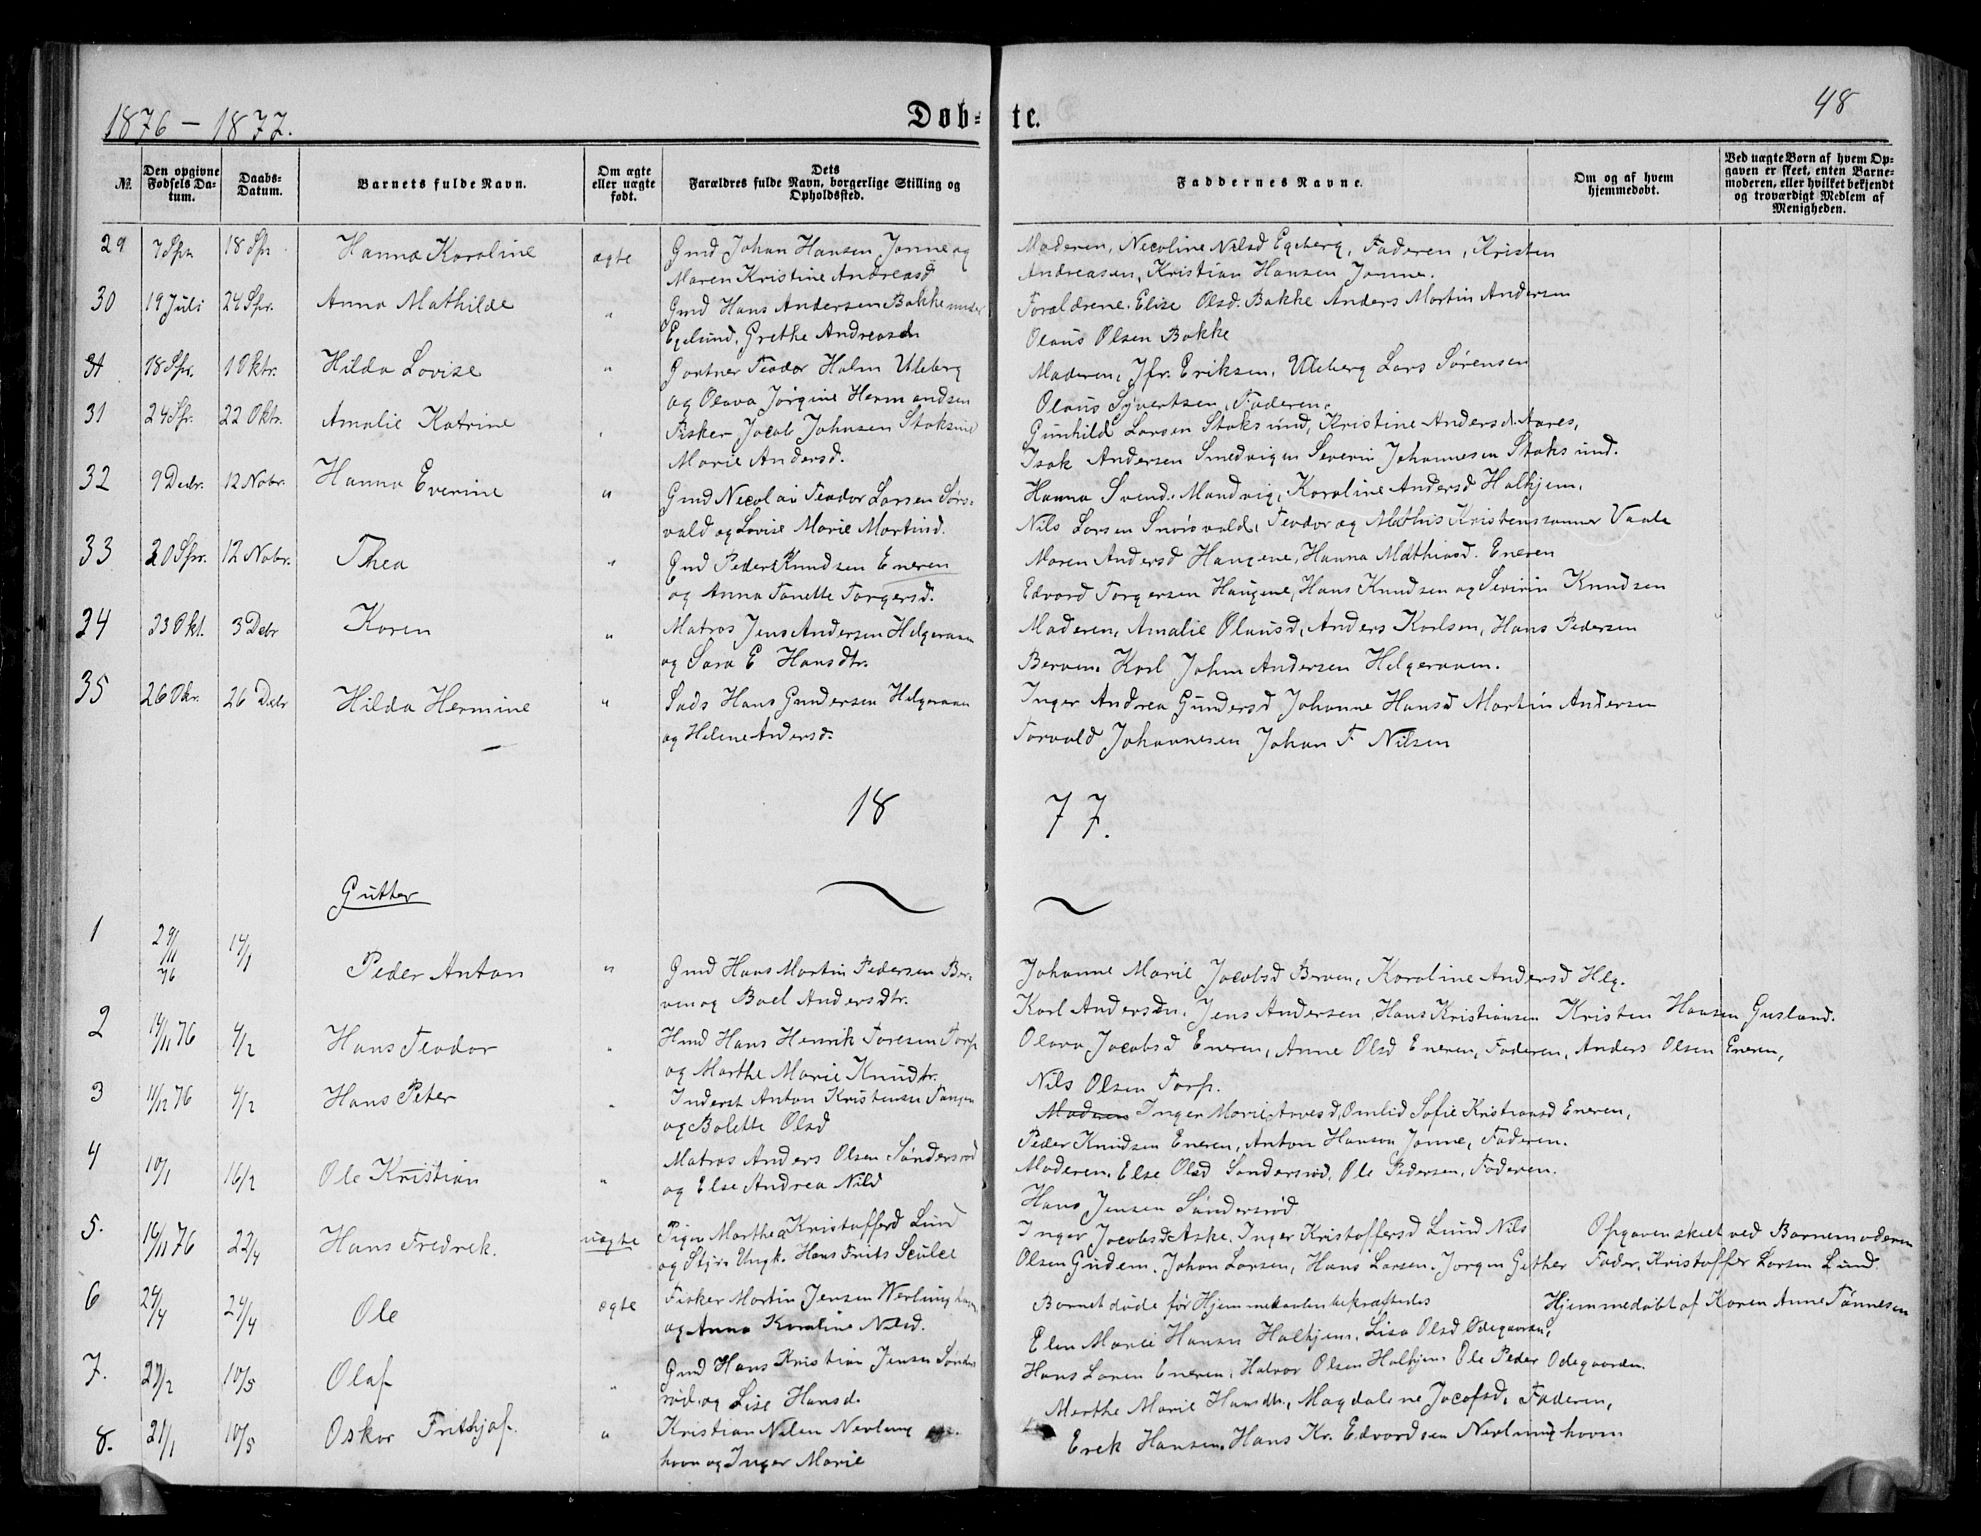 1876 – 1877.
Døb- te.
48
№
Den opgivne Fødsels Datum.
Daabs-Datum.
Barnets fulde Navn.
Om ægte eller uægte født.
Dets Forældres fulde Navn, borgerlige Stilling og Opholdssted.
Faddernes Navne.
Om og af hvem hjemmedøbt.
Ved uægte Børn af hvem Opgaven er skeet, enten Barnemoderen, eller hvilket bekjendt og troværdigt Medlem af Menigheden.
29 7 Spr 18 Spr Hanna Karoline ægte Gmd Johan Hansen Jonne og Moderen, Necoline Nilsd Egeberg, Faderen, Kristen
Maren Kristine Andreasd Andreasen, Kristian Hansen Jonne.
30 19 Juli 24 Spr. Anna Mathilde " Gmd Hans Andersen Bakke under Forældrene. Elise Olsd. Bakke Anders Martin Andersen
Egelund. Grethe Andreasd Olaus Olsen Bakke
18 Spr. 1 Oktr. Hilda Lovise " Gartner Teodor Holm Uleberg Moderen, Jfr. Eriksen, Uleberg Lars Sørensen
og Olava Jørgine Hermandsen Olaus Syvertsen, Faderen.
31 24 Spr. 22 Oktr. Amalie Katrine " Fisker Jacob Johnsen Stoksund Gunhild Larsen Stoksund, Kristine Andersd. Aares,
Marie Andersd. Isak Andersen Smedvigen Severin Johannesen Stoksund.
32 9 Decbr. 12 Nobr. Hanna Everine " Gmd Necolai Teodor Larsen Sørs- Hanna Svend. Mandvig, Karoline Andersd Halhjem,
vald og Lovise Marie Martinsd. Nils Larsen Snørsvald, Teodor og Mathis Kristenssønner Vaale
33 20 Spr. 12 Nobr. Thea " Gmd Peder Knudsen Eneren Maren Andersd Haugene, Hanna Mathiasd. Eneren
og Anna Tonette Torgersd. Edvard Torgersen Haugene, Hans Knudsen og Severin Knudsen
34 23 Okt. 3 Debr Karen " Matros Jens Andersen Helgeraaen Moderen, Amalie Olausd, Anders Karlsen, Hans Pedersen
og Sara E Hansdtr. Berven. Karl Johan Andersen Helgeraaen.
35 26 Okr. 26 Debr Hilda Hermine " Sads Hans Gundersen Helgeraaen Inger Andrea Gundersd Johanne Hansd Martin Andersen
og Helene Andersd. Torvald Johannesen Johan F Nilsen
18 77.
Gutter
1 29/11 76 14/1 Peder Anton " Gmd Hans Martin Pedersen Ber- Johanne Marie Jacobsd Berven, Karoline Andersd Helg.
ven og Boel Andersdtr. Karl Andersen. Jens Andersen, Hans Kristiansen Kristen Hansen Gusland.
2 14/11 76 4/2 Hans Teodor " Hmd Hans Henrik Toresen Torp Olava Jacobsd Eneren, Anne Olsd Eneren, Faderen, Anders Olsen Eneren,
og Marthe Marie Knudtr. Nils Olsen Torp.
3 11/12 76 4/2 Hans Peter " Inderst Anton Kristensen Tangen Moderen Inger Marie Arvesd, Omlid Sofie Kristiansd Eneren,
og Bolette Olsd Peder Knudsen Eneren, Anton Hanson Jonne, Faderen.
4 10/1 16/2 Ole Kristian " Matros Anders Olsen Søndersrød Moderen. Else Olsd Søndersrød, Ole Pedersen, Faderen.
og Else Andrea Nilsd Hans Jensen Søndersrød
5. 14/11 76 22/4 Hans Fredrek. uægte Pigen Marthea Kristofferd Lund Inger Jacobsd Aske. Inger Kristoffersd Lund Nils Opgaven skeet ved Barnemoderen
og Styrm Ungk. Hans Frits Olsen Gudem. Johan Larsen, Hans Larsen. Jørgen Fader, Kristoffer Larsen Lund.
6 24/4 24/4 Ole ægte Fisker Martin Jensen Nevlunghavn Barnet døde før Hjemmedaaben bekræftedes Hjemmedøbt af Karen Anne Tønnesen
og Anna Karoline Nilsd. Elen Marie Hansen Halhjem. Lisa Olsd Ødegaarden,
7. 27/2 10/5 Olaf " Gmd Hans Kristian Jensen Sønders Hans Laren Eneren, Halvor Olsen Halhjem Ole Peder Ødegaarden
rød. og Lise Hansd. Marthe Marie Hansdtr., Magdalene Jacobsd, Faderen,
8. 21/1 10/5 Oskar Frithjof " Kristian Nilsen Nevlung Erek Hansen. Hans Kr. Edvardsen Nevlunghavn
havn og Inger Marie